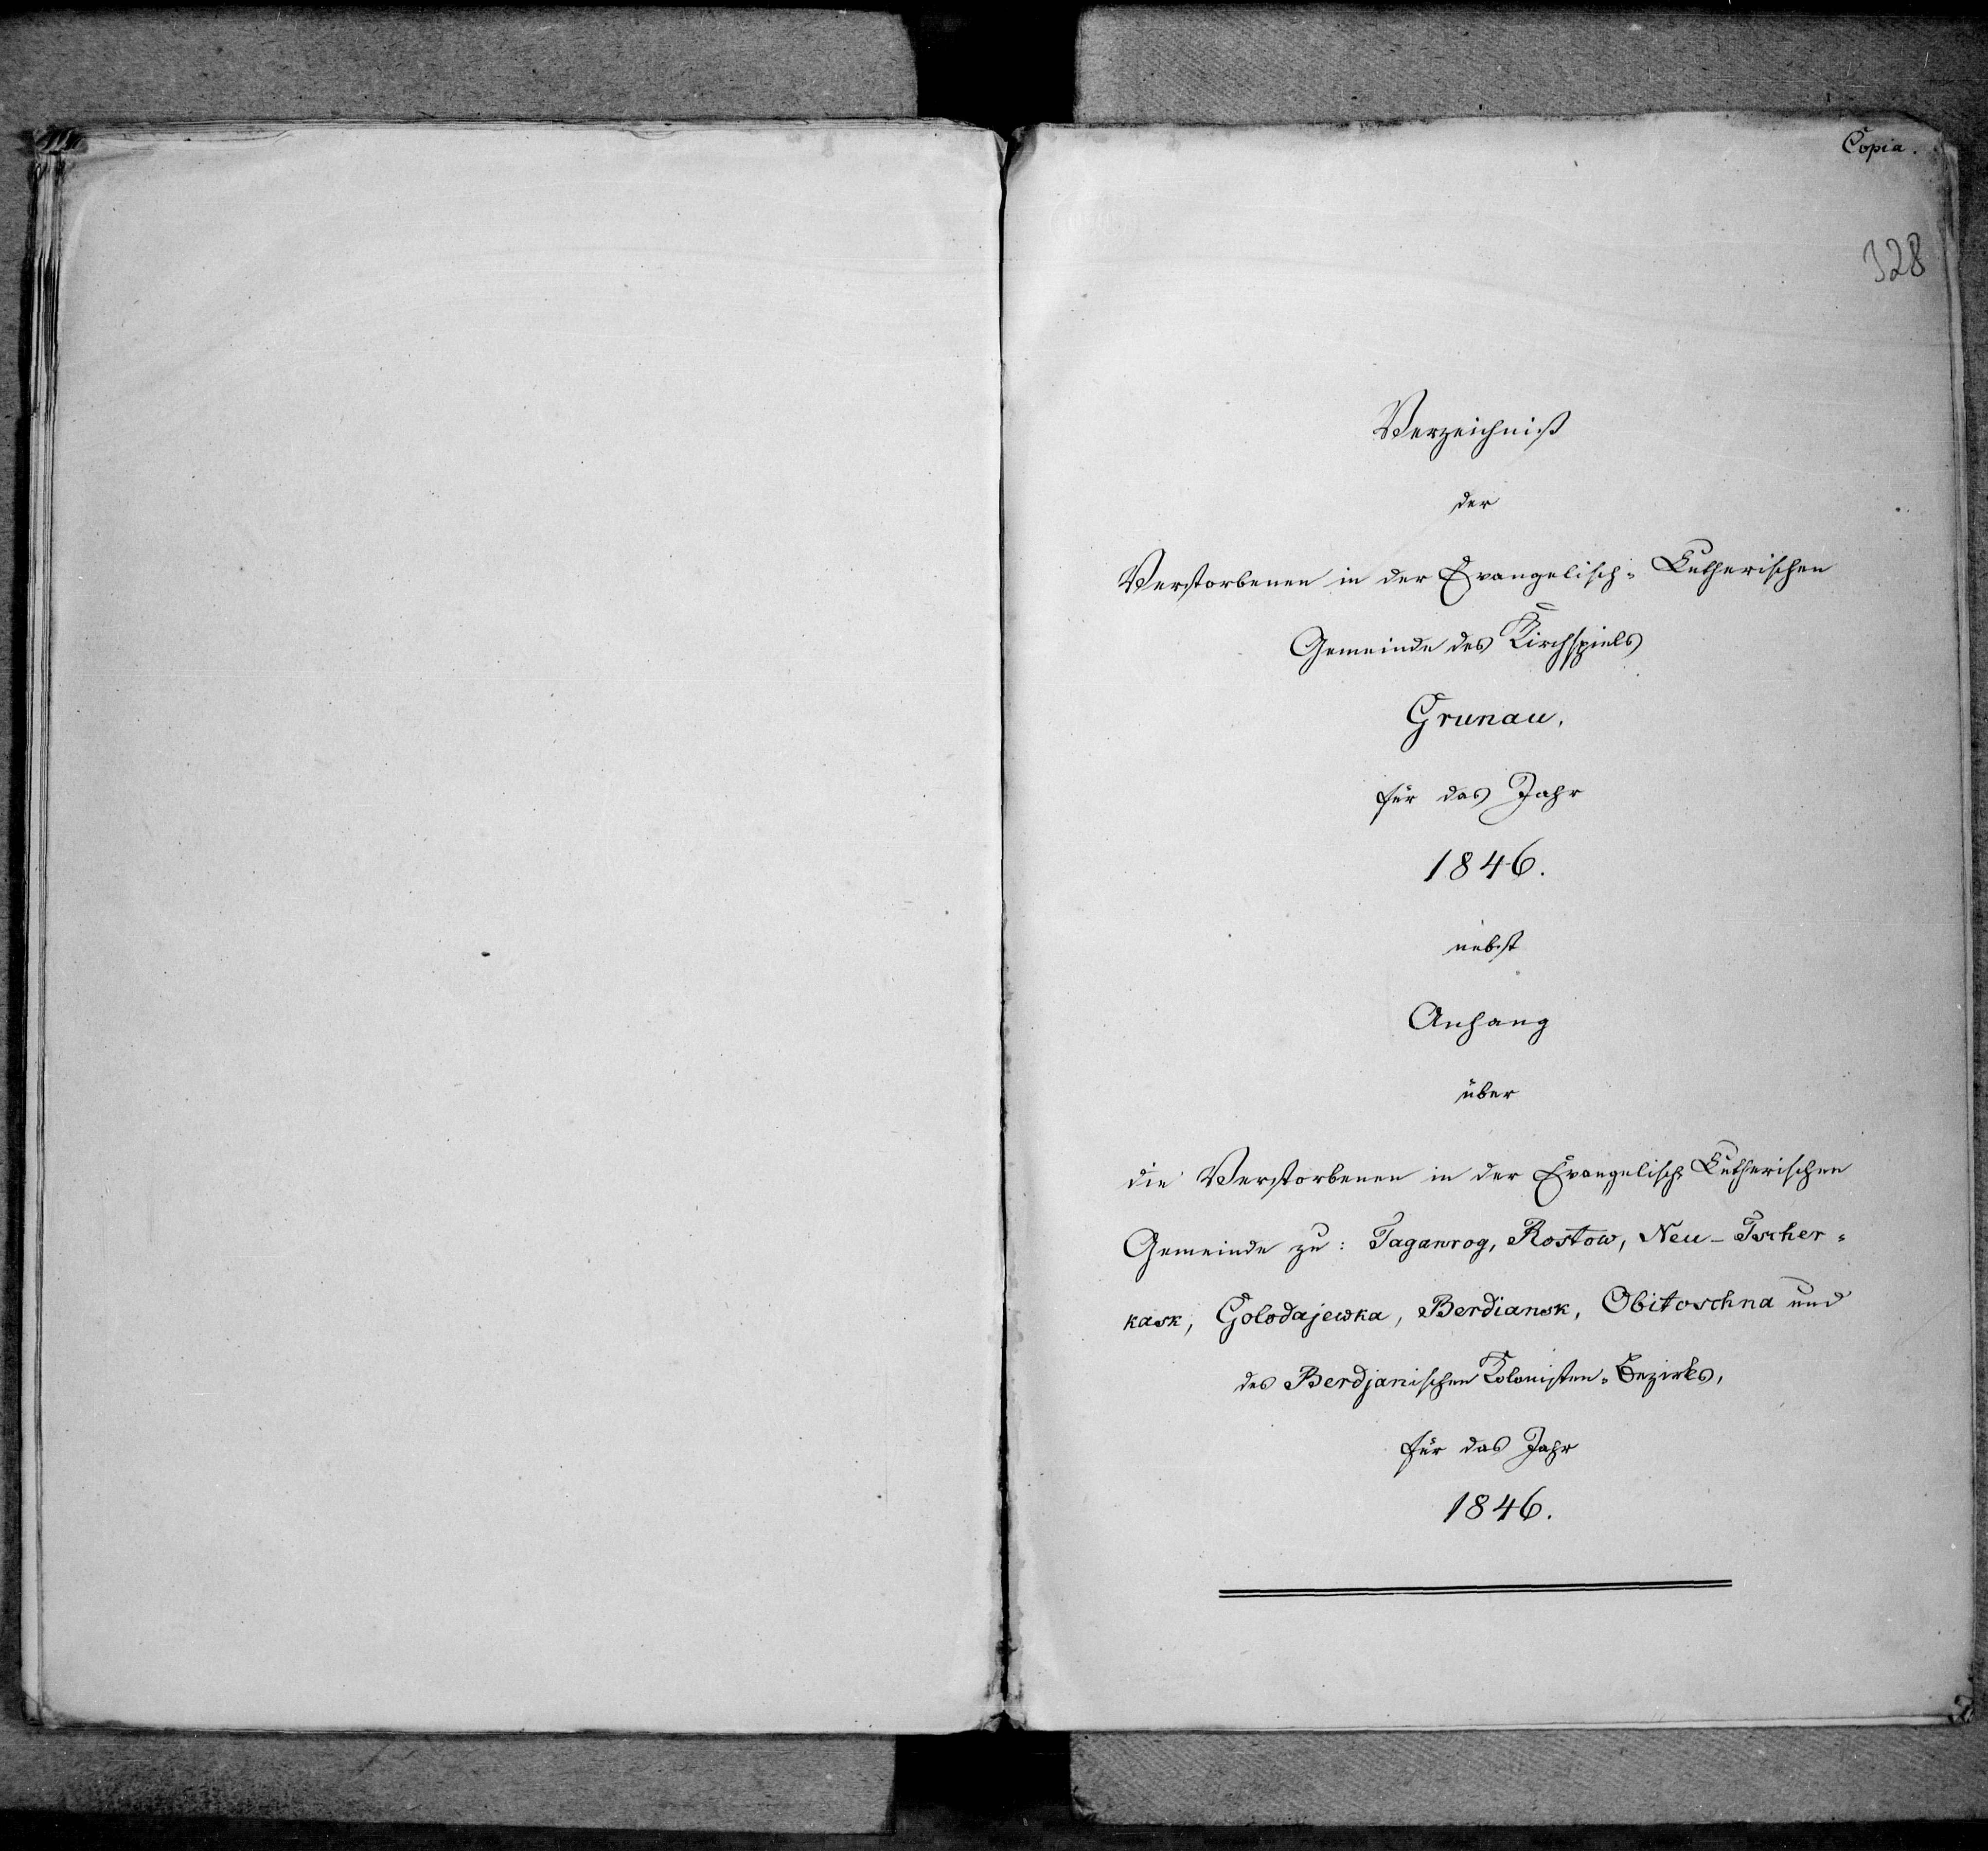 Copia.
328
Verzeichniß
der
Verstorbenen in der Evangelisch= Lutherischen
Gemeinde des Kirchspiels
Grunau,
für das Jahr
1846.
nebst
Anhang
über
die Verstorbenen in der Evangelisch Lutherischen
Gemeinde zu: Taganrog, Rostow, Neu-Tscher=
kask, Golodajewka, Berdiansk, Obitoschna und
des Berdjanischen Kolonisten=Bezirks,
für das Jahr
1846.